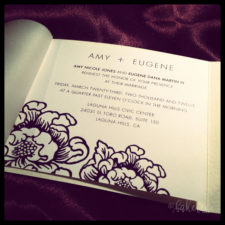 AMY + EUGENE
AMY NICOLE JONES AND EUGENE DANA MARTIN III
REQUEST THE HONOR OF YOUR PRESENCE
AT THEIR MARRIAGE
FRIDAY, MARCH TWENTY-THIRD, TWO THOUSAND AND TWELVE
AT A QUARTER PAST ELEVEN O'CLOCK IN THE MORNING
LAGUNA HILLS CIVIC CENTER
24031 EL TORO ROAD, SUITE 150
LAGUNA HILLS, CA